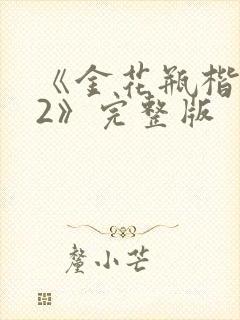 《金花瓶楷
2》完整版
釐小芒